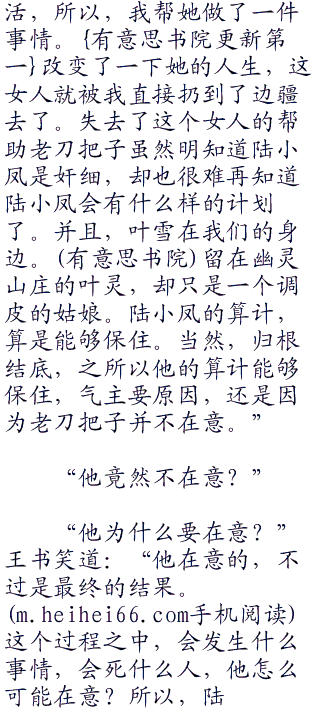 活，所以，我帮她做了一件
事情。{有意思书院更新第
一}改变了一下她的人生，这
女人就被我直接扔到了边疆
去了。失去了这个女人的帮
助老刀把子虽然明知道陆小
凤是奸细，却也很难再知道
陆小凤会有什么样的计划
了。并且，叶雪在我们的身
边。(有意思书院)留在幽灵
山庄的叶灵，却只是一个调
皮的姑娘。陆小凤的算计，
算是能够保住。当然，归根
结底，之所以他的算计能够
保住，气主要原因，还是因
为老刀把子并不在意。”
“他竟然不在意？”
“他为什么要在意？”
王书笑道：“他在意的，不
过是最终的结果。
(m.heihei66.com手机阅读)
这个过程之中，会发生什么
事情，会死什么人，他怎么
可能在意？所以，陆